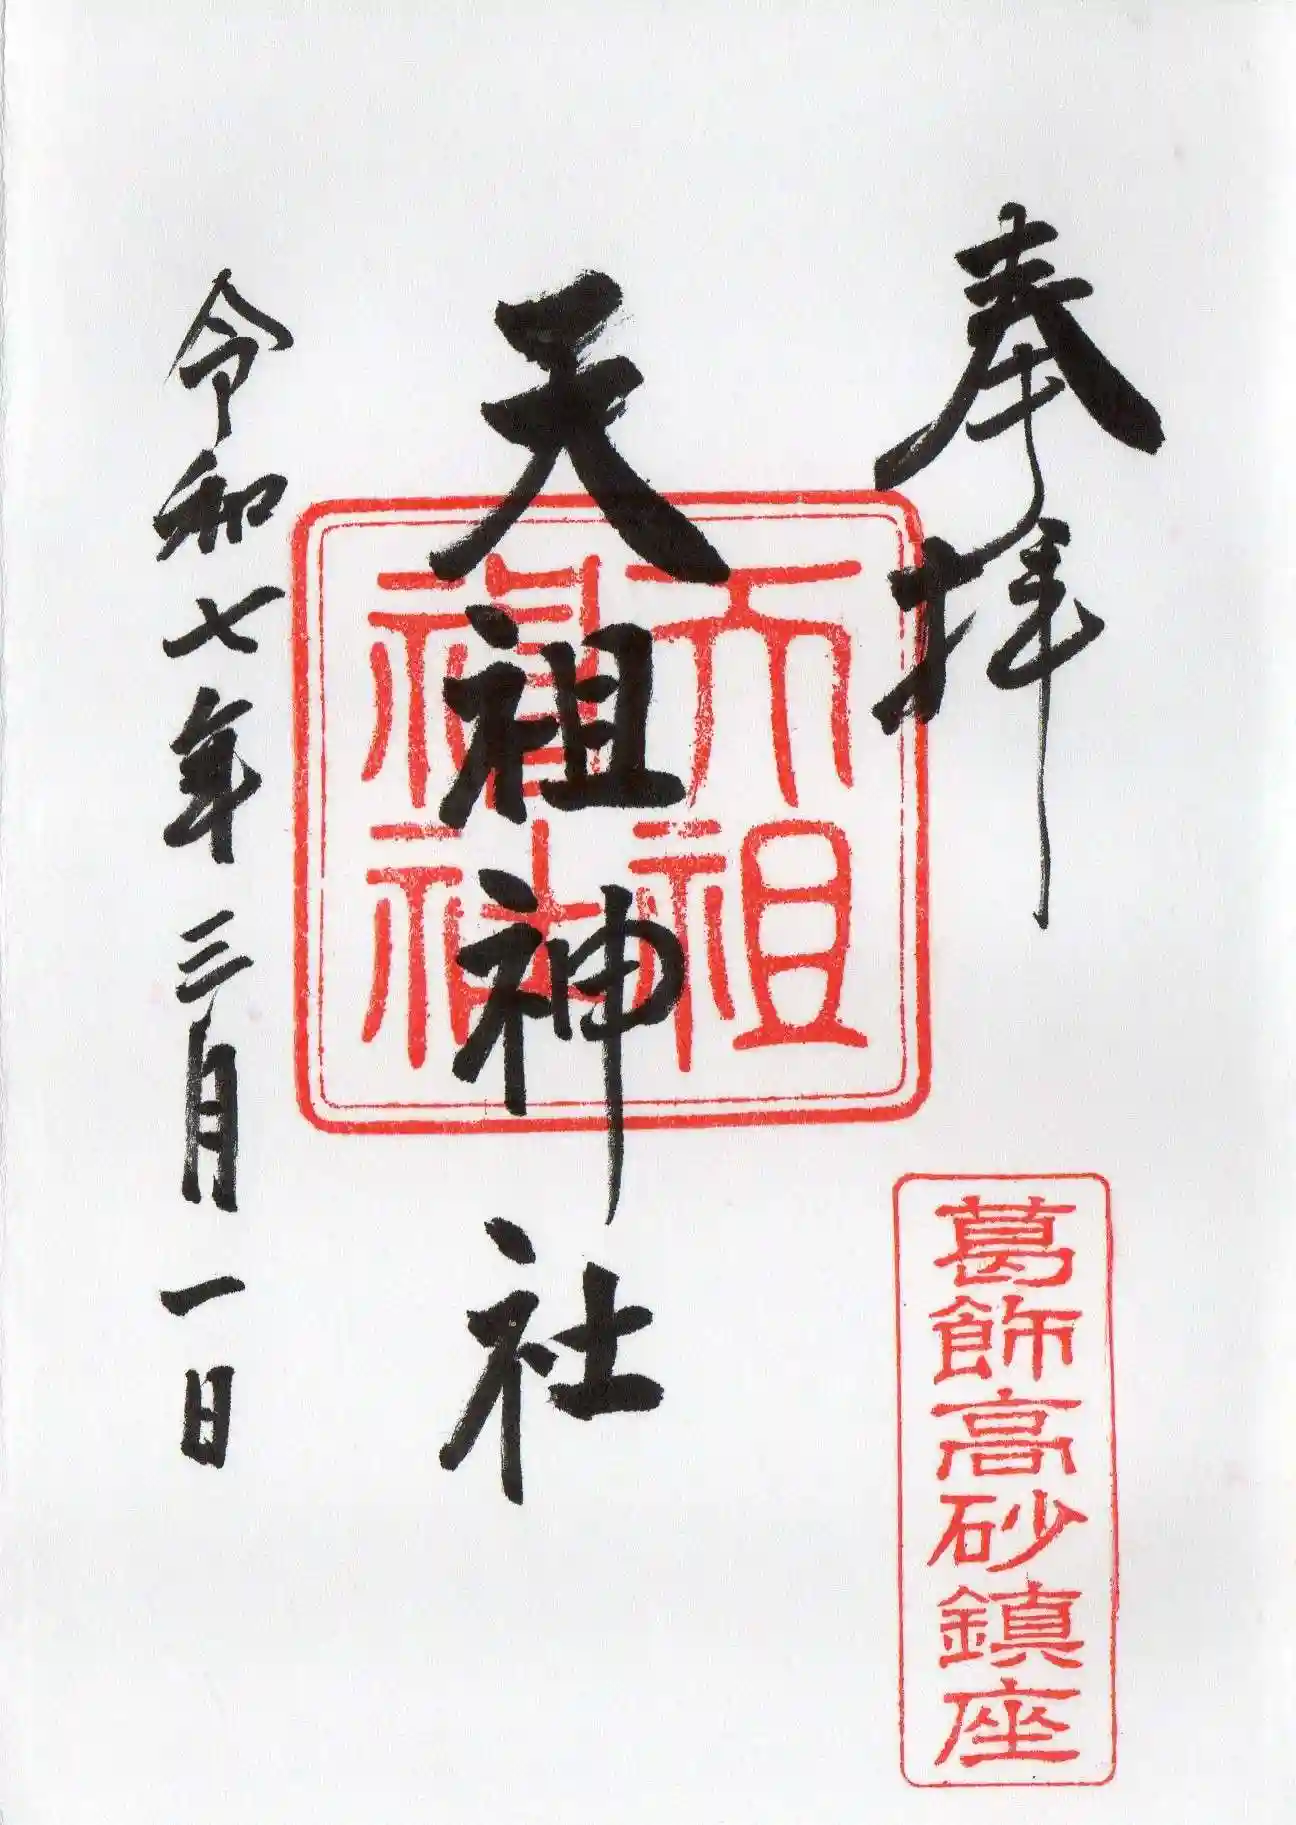 奉拝
葛飾高砂鎮座
天祖神社
天祖神社
令和七年三月一日